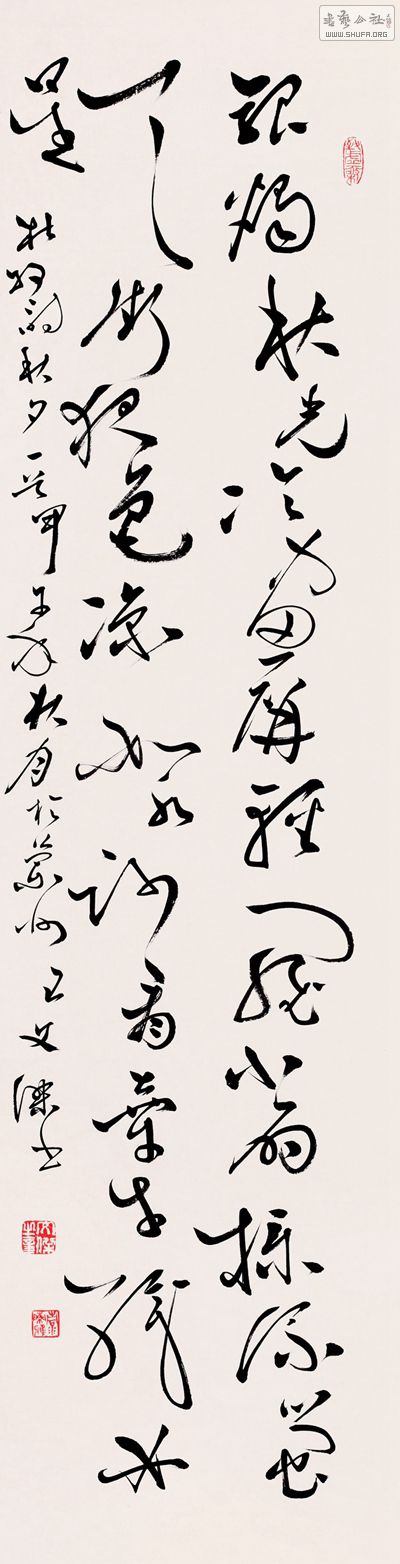 書藝公社
WWW.SHUFA.ORG
銀燭秋光冷畫屏輕羅小扇撲流螢
天街夜色涼如水卧看牽牛織女
星
杜牧詩秋夕一首甲午年秋月於蘭州王文傑書